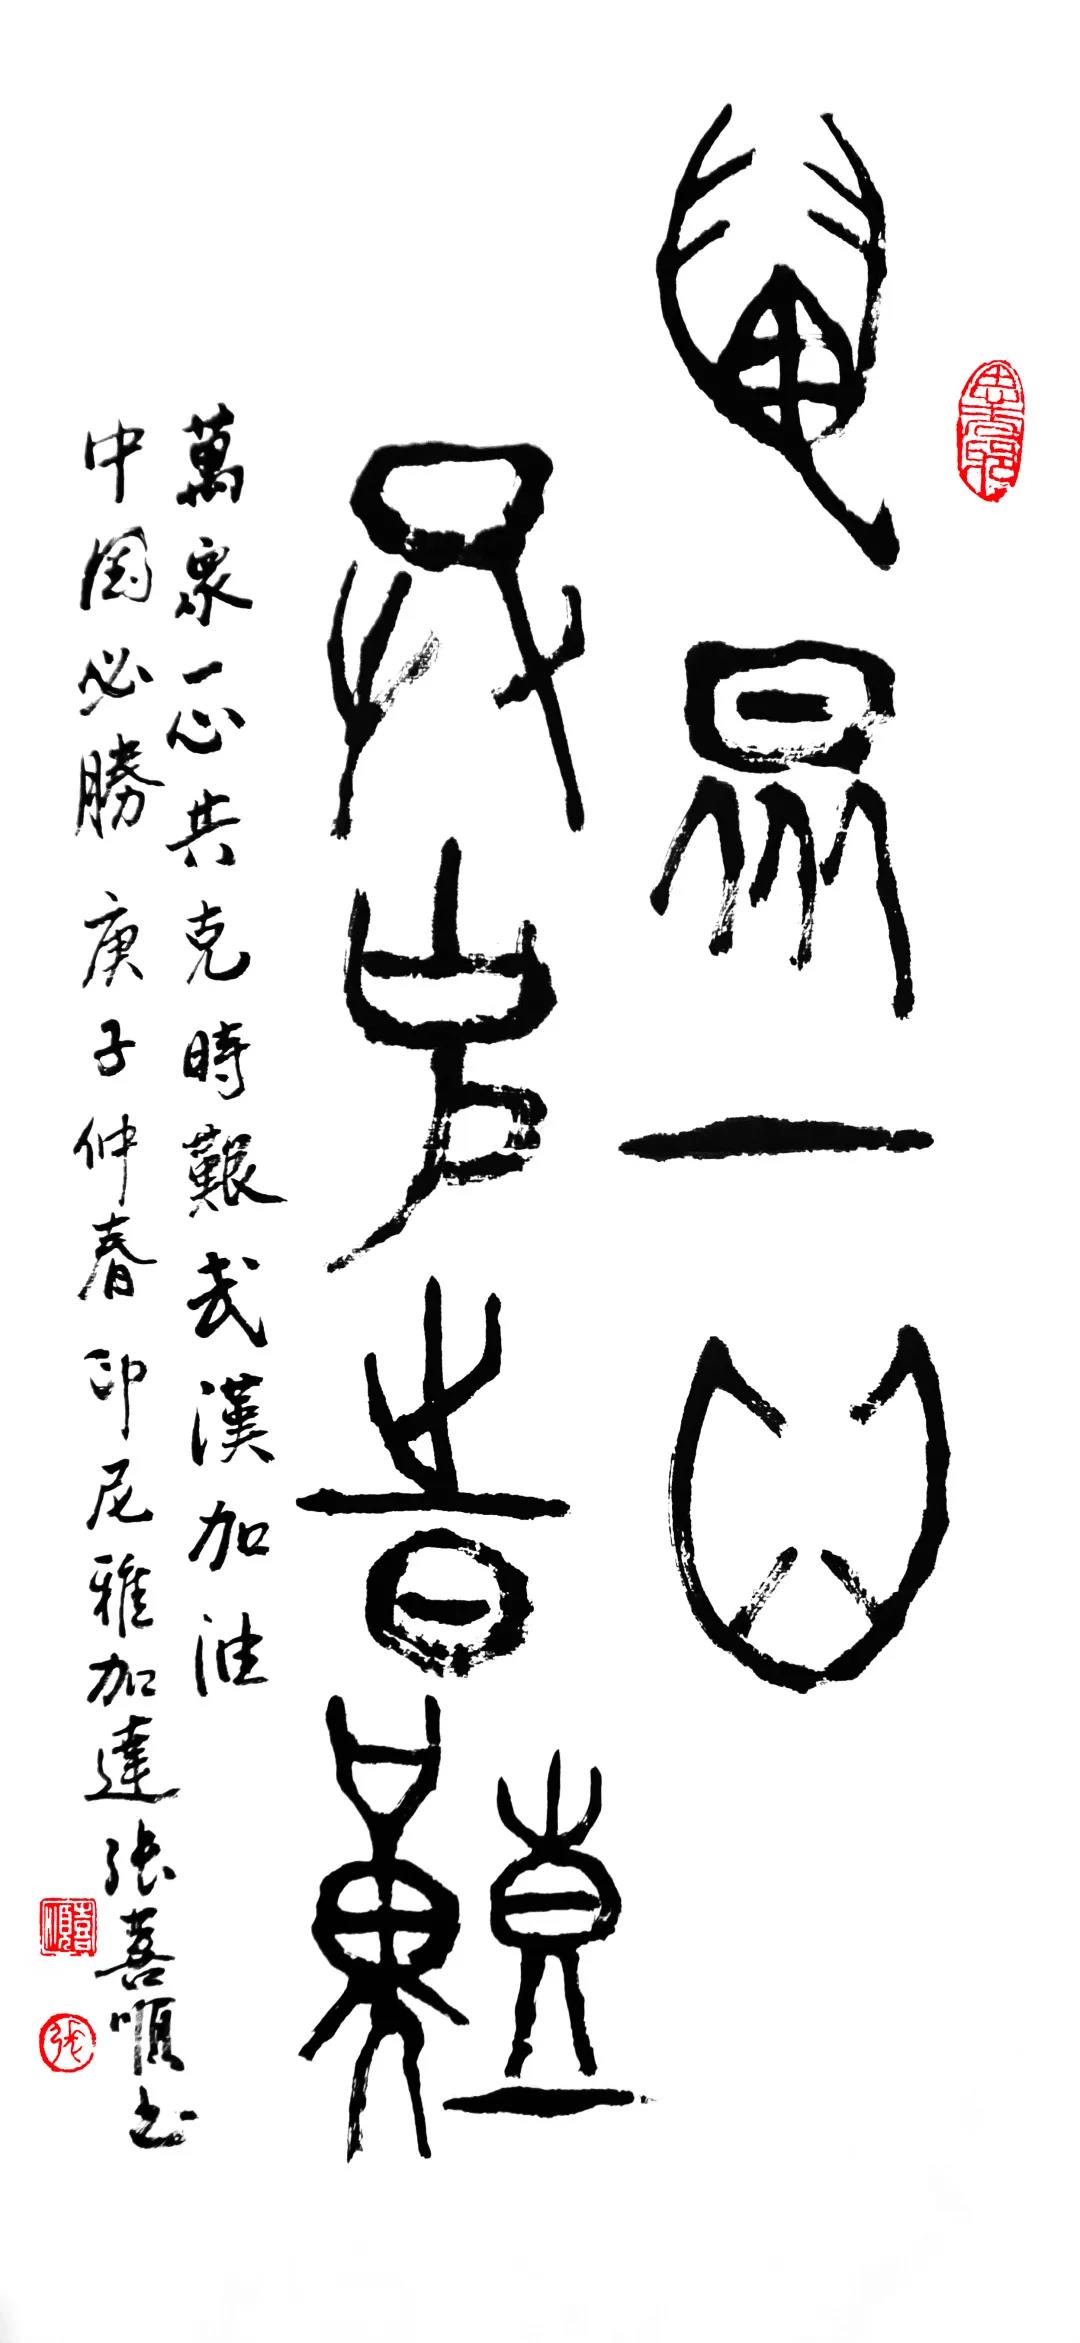 萬眾一心
共克時艱
萬眾一心共克時艱武漢加油
中国必勝庚子仲春印尼雅加達張喜順书
喜順
張